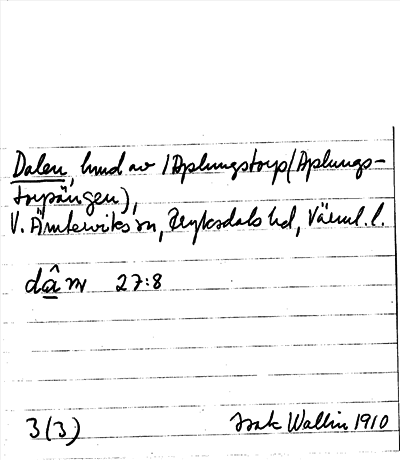 Dalen, hmd av 1 Aplungstorp (Aplungs-
torpängen),
V. Ämterviks sn, Fryksdals hd, Värml. l.
dâ̱n 27:8
3(3) Isak Wallin 1910